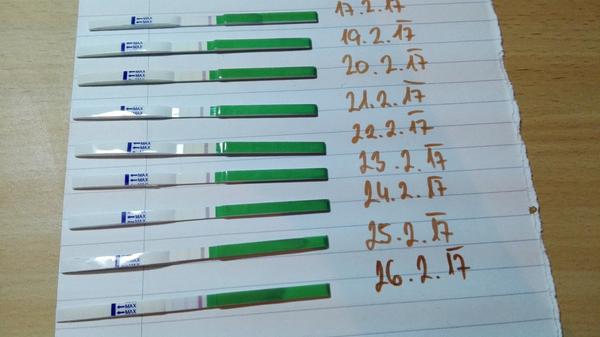 MAX
MAX
17.2.17
MAX
MAX
19.2.17
MAX
MAX
20.2.17
MAX
MAX
21.2.17
22.2.17
MAX
MAX
23.2.17
MAX
MAX
24.2.17
MAX
MAX
25.2.17
MAX
26.2.17
MAX
MAX